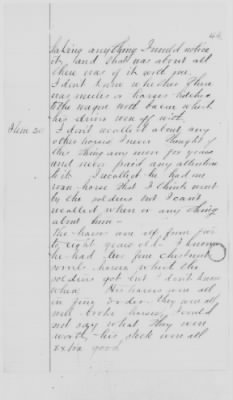 46
taking anything I would notice
it, and that was about all
there was of it with me.
I don't know whether there
was mules or horses hitched
to the wagon with bacon which
his drivers run off with.
Item 20 I don't recollect about any
other horses I never thought of
the thing any more for years
and never paid any attention
to it. I recollect he had one
roan horse that I think went
by the soldiers but I cant
recollect when or any thing
about him—
The horses were all from five
to eight years old. I know
he had two fine chestnut
sorrel horses which the
soldiers got but I don't know
when. His horses were all
in fine order they were all
well broke horses, I could
not say what they were
worth—his stock were all
extra good